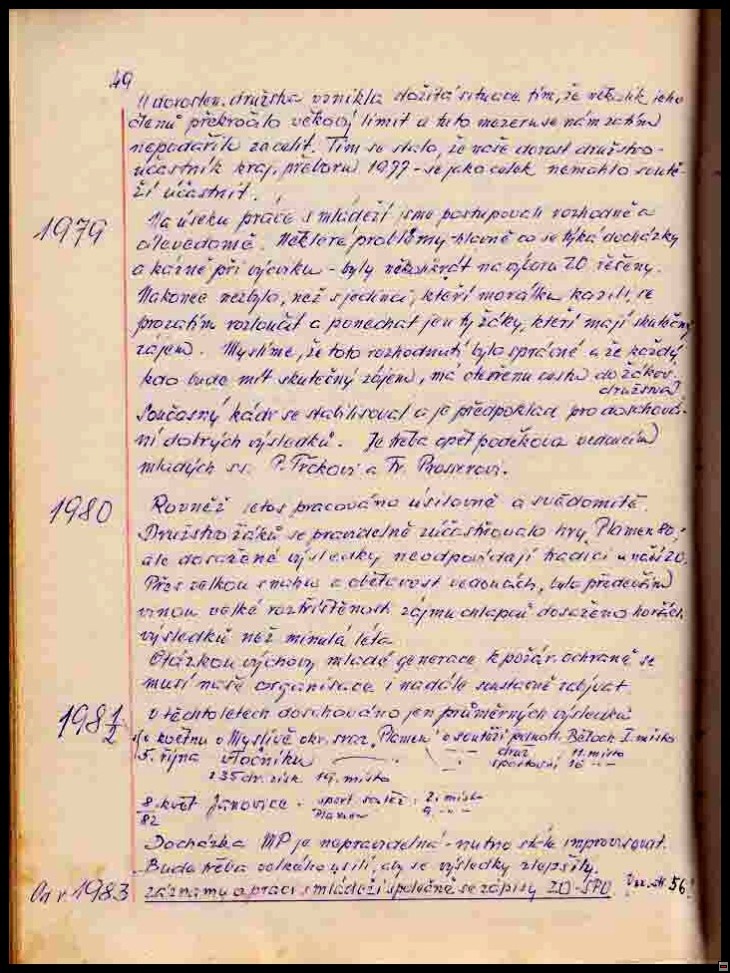 49
U dorosten. družstva vznikla složitá situace tím, že několik jeho
členů překročilo věkový limit a tuto mezeru se nám zatím
nepodařilo zacelit. Tím se stalo, že naše dorost. družstvo -
účastník kraj. přeboru 1977 - se jako celek nemohlo soutě-
ží účastnit.
1979 Na úseku práce s mládeží jsme postupovali rozhodně a
cílevědomě. Některé problémy - hlavně co se týká docházky
a kázně při výcviku - byly několikrát na výboru ZO řešeny.
Nakonec nezbylo, než s jedinci, kteří morálku kazili, se
prozatím rozloučit a ponechat jen ty žáky, kteří mají skutečný
zájem. Myslíme, že toto rozhodnutí bylo správné a že každý
kdo bude mít skutečný zájem, má otevřenu cestu do žákov.
družstva
Současný kádr se stabilisoval a je předpoklad pro dosahová-
ní dobrých výsledků. Je třeba opět poděkovat vedoucím
mladých s. P. Trčkovi a Fr.
1980 Rovněž letos pracováno úsilovně a svědomitě.
Družstvo žáků se pravidelně zúčastňovalo hry Plamen 80,-
ale dosažené výsledky neodpovídají tradici v naší ZO.
Přes velkou snahu a obětavost vedoucích, bylo především
vinou velké roztříštěnosti zájmu chlapců dosaženo horších
výsledků než minulá léta.
Otázkou výchovy mladé generace k požár. ochraně se
musí naše organisace i nadále soustavně zabývat.
1981/2 V těchto letech dosahováno jen průměrných výsledků
května v Myslívě okr. svaz. "Plamen" v soutěži jednotl. Běloch I. místo
druž. 11. místo
5. října v Točníku sportovní 16 -"-
z 35 dr. zisk. 19. místo
8. květ. Janovice - sport. soutěž: 2. místo
82 Plamen 9. -"-
Docházka MP je nepravidelná - nutno stále improvisovat.
Bude třeba velkého úsilí, aby se výsledky zlepšily.
Od r. 1983 záznamy o práci s mládeží společně se zápisy ZO-SPO Viz. str 56!